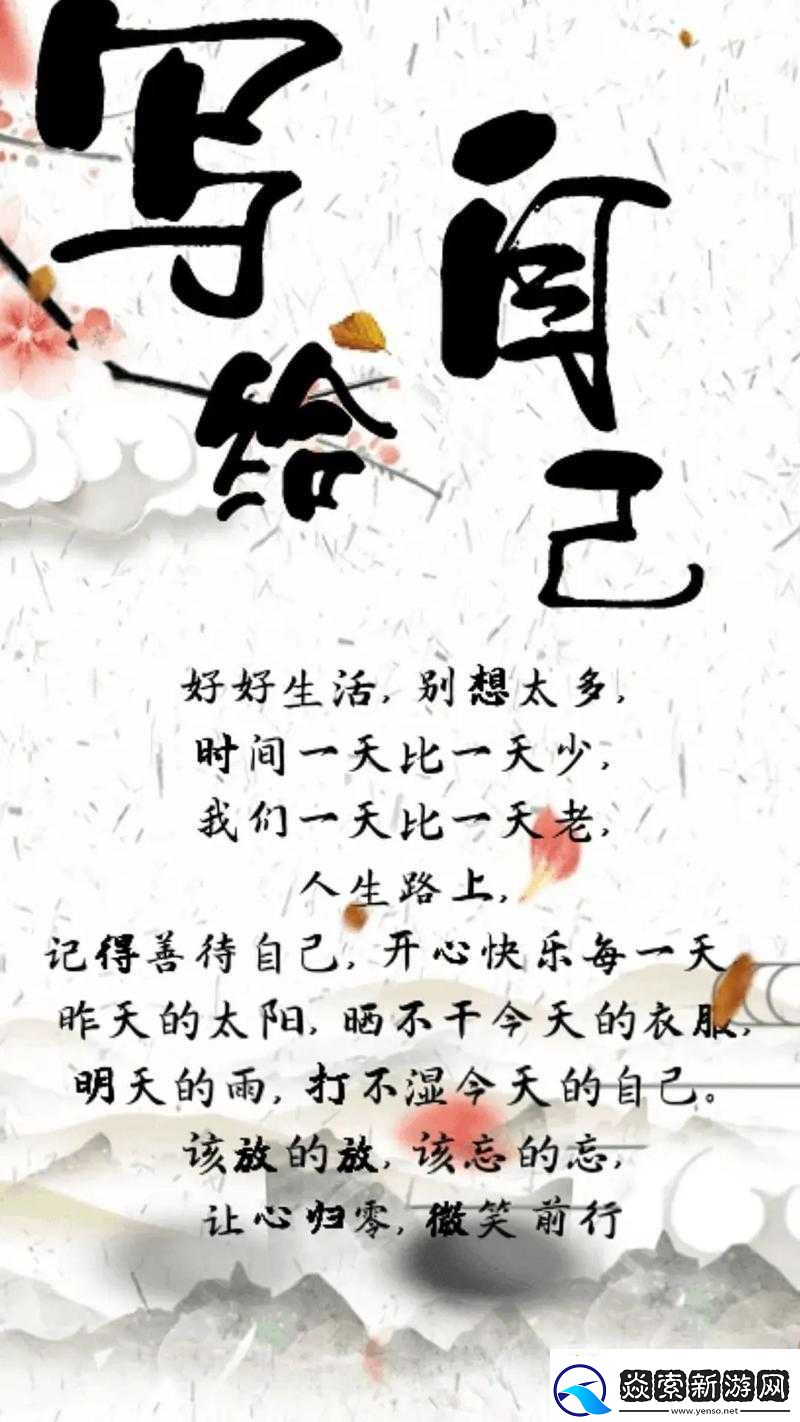 写给
自己
好好生活,别想太多,
时间一天比一天少,
我们一天比一天老,
人生路上,
记得善待自己,开心快乐每一天
昨天的太阳,晒不干今天的衣服,
明天的雨,打不湿今天的自己。
该放的放,该忘的忘,
让心归零,微笑前行
焱索新游网
www.yenso.net